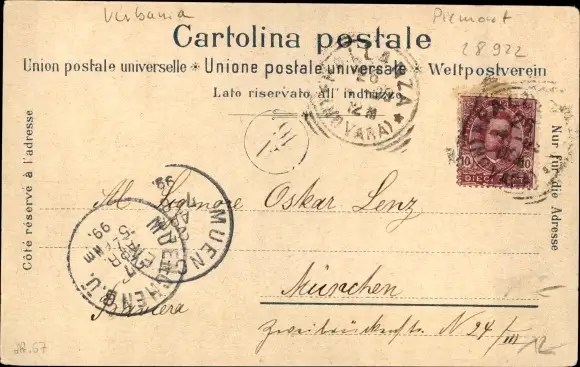 Verbania
Piemont
28922
Cartolina postale
Union postale universelle * Unione postale universale * Weltpostverein
Lato riservato all' indirizzo
PALLANZA
12 M
(NOVARA)
DIECI
10
Côté réservé à l'adresse
Nur für die Adresse
III
Al Signore Oskar Lenz
MUENCHEN
99.
München
Baviera
Zweibrückenstr. N 24/III
12